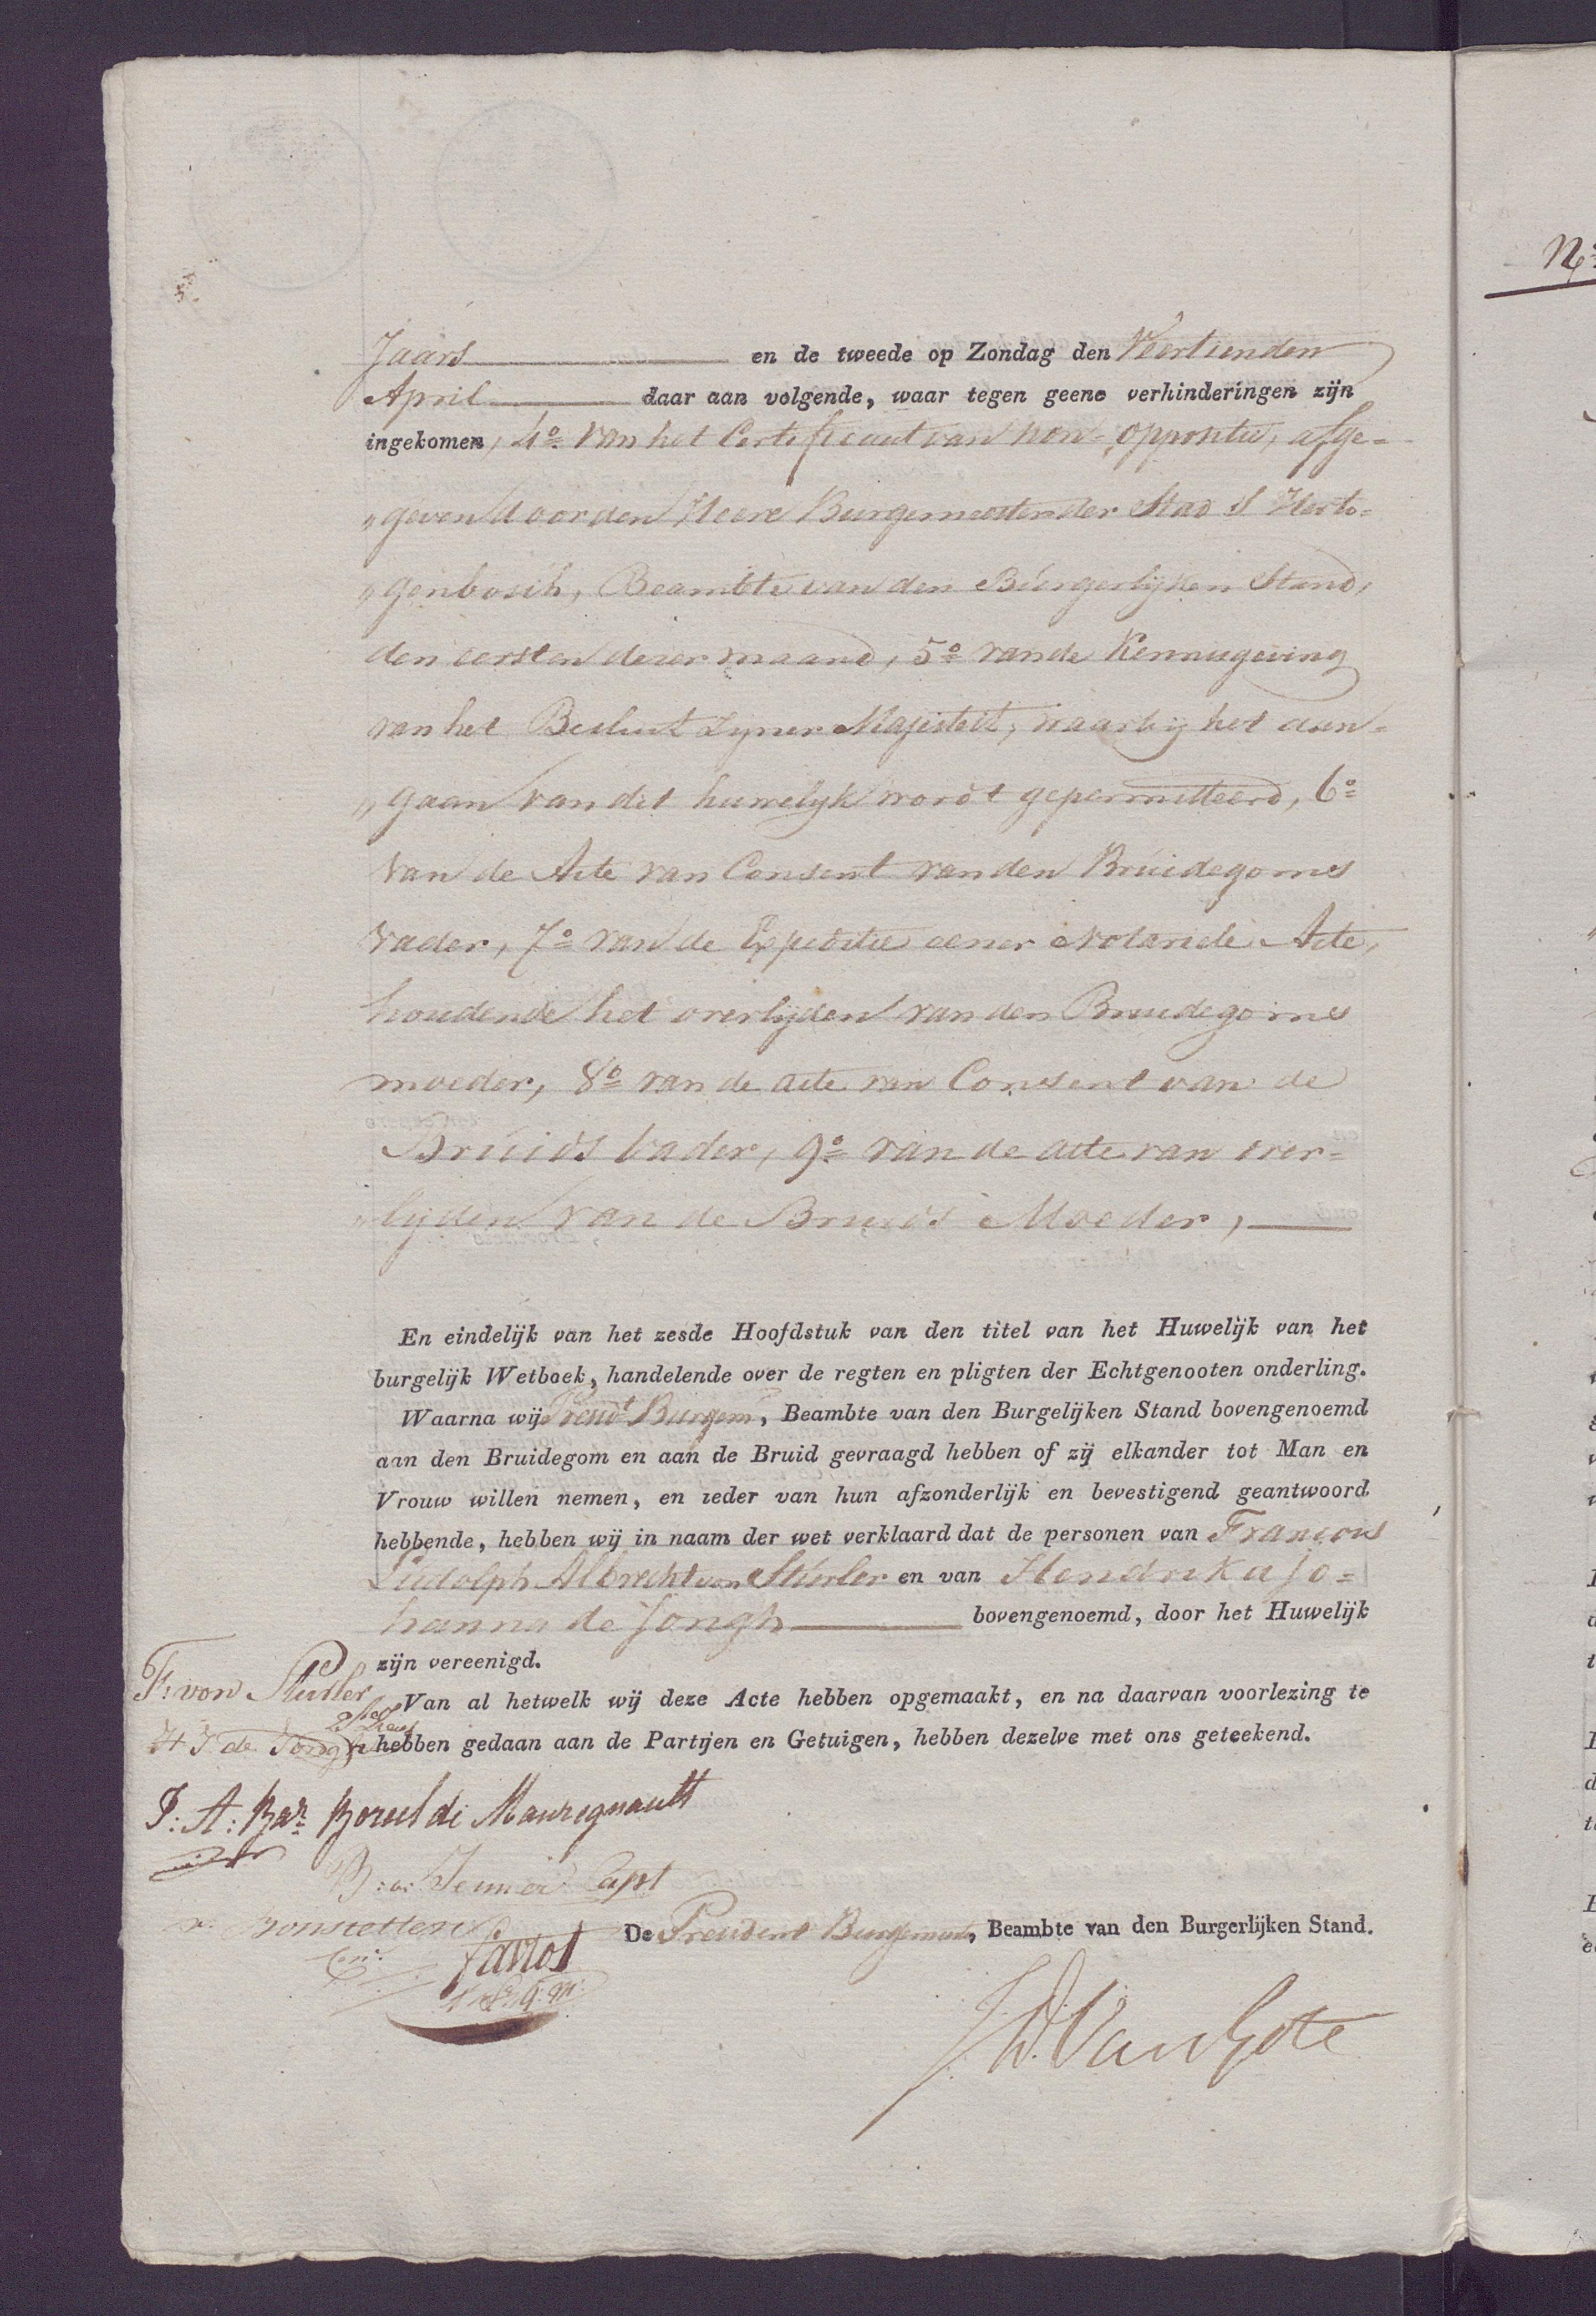 Jaars en de tweede op Zondag den Veertienden
April daar aan volgende, waar tegen geene verhinderingen zijn
ingekomen, 4º van het Certificaat van non-oppositie, afge-
„geven door den Heere Burgemeester der Stad S Herto-
„genbosch, Beambte van den Burgerlijken Stand,
den eersten dezer maand, 5º van de Kennisgeving
van het Besluit Zyner Majesteit, waarbij het aan-
„gaan van dit huwelijk wordt gepermitteerd, 6º
van de Acte van Consent van den Bruidegoms
vader, 7º van de Expeditie eener Notariele Acte,
houdende het overlijden van den Bruidegoms
moeder, 8º van de acte van Consent van de
Bruids vader, 9º van de acte van over-
„lijden van de Bruids Moeder,
En eindelijk van het zesde Hoofdstuk van den titel van het Huwelijk van het
burgelijk Wetboek, handelende over de regten en pligten der Echtgenooten onderling.
Waarna wij Presidt Burgem, Beambte van den Burgelijken Stand bovengenoemd
aan den Bruidegom en aan de Bruid gevraagd hebben of zij elkander tot Man en
Vrouw willen nemen, en ieder van hun afzonderlijk en bevestigend geantwoord
hebbende, hebben wij in naam der wet verklaard dat de personen van Francois
Ludolph Albrecht von Stürler en van Hendrika Jo-
hanna de Jongh bovengenoemd, door het Huwelijk
zijn vereenigd.
F: von Sturler
Van al hetwelk wij deze Acte hebben opgemaakt, en na daarvan voorlezing te
H J de Jongh
hebben gedaan aan de Partijen en Getuigen, hebben dezelve met ons geteekend.
J: A: Bar: Boreel de Mauregnault
B: v: Jenner Capt
v. Bonstetten
De President Burgemeester, Beambte van den Burgerlijken Stand.
J.W. Van Gote
Nº